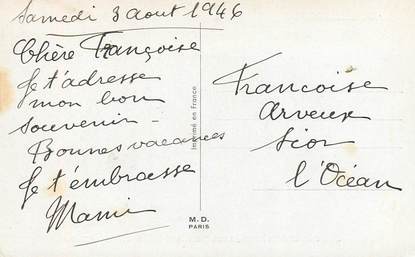 Samedi 3 aout 1946
Chère Françoise
Je t'adresse
mon bon
souvenir -
Bonnes vacances
Je t'embrasse
Mami
Imprimé en France
M. D.
PARIS
Francoise
Arveux
Sion
l'Océan